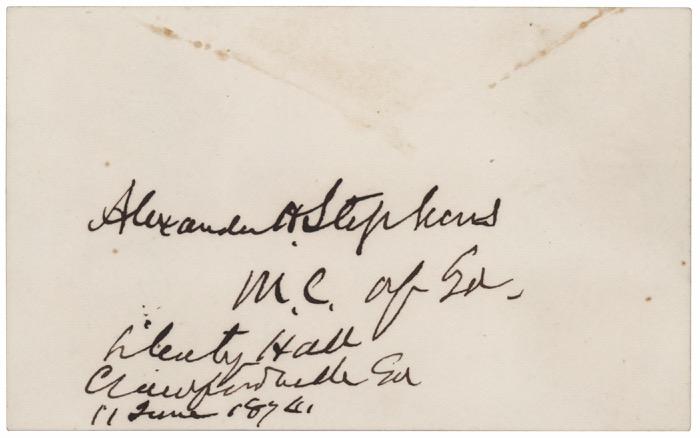 Alexander H. Stephens
M.C. of Ga.
Liberty Hall
Crawfordville Ga
11 June 1874.